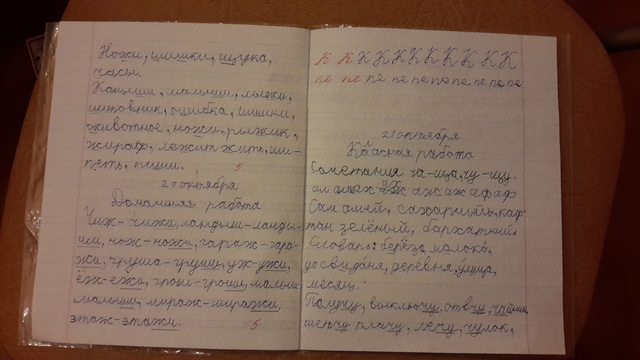 Ножи, шишки, щука,
часы.
Камыши, малыши, лыжи,
шиповник, ошибка, шишки,
животное, ножи, рыжик,
жираф, лежит жить, ши-
петь. пиши.
5
20 октября
Домашняя работа
Чиж-чижи, ландыш-ланды-
ши, нож-ножи, гараж-гара-
жи, груша-груши, уж-ужи,
ёж-ежи, грош-гроши, малыш
малыши, мираж-миражи,
этаж-этажи.
5
К К К К К К К К К К К
пе пе пе пе пе пе пе пе пе пе
21 октября
Классная работа
Сочетания ча-ща, чу-щу.
ах аж аж аф аф
Сам алый, сахарный, каф
тан зелёный, бархатный.
Словарь: берёза, молоко,
до свидания, деревня, улица,
месяц.
Получу, включу, отвечу,
шепчу плачу, лечу, чулок,